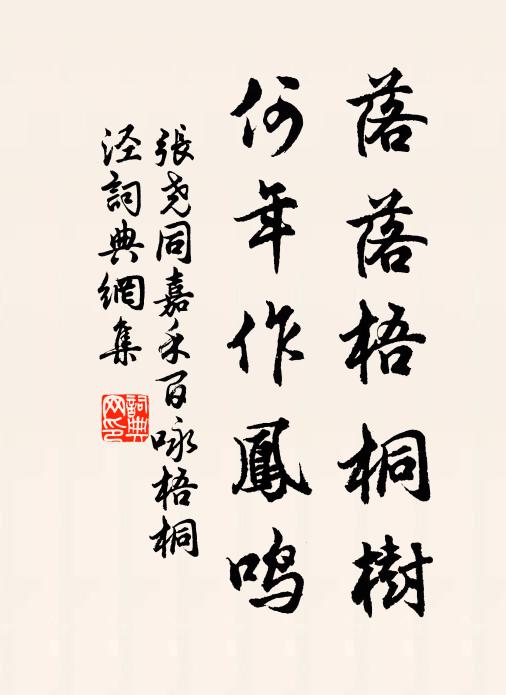 落落梧桐樹
何年作鳳鸣
張尧同嘉禾百咏梧桐
泾詞典網集
詞典网印